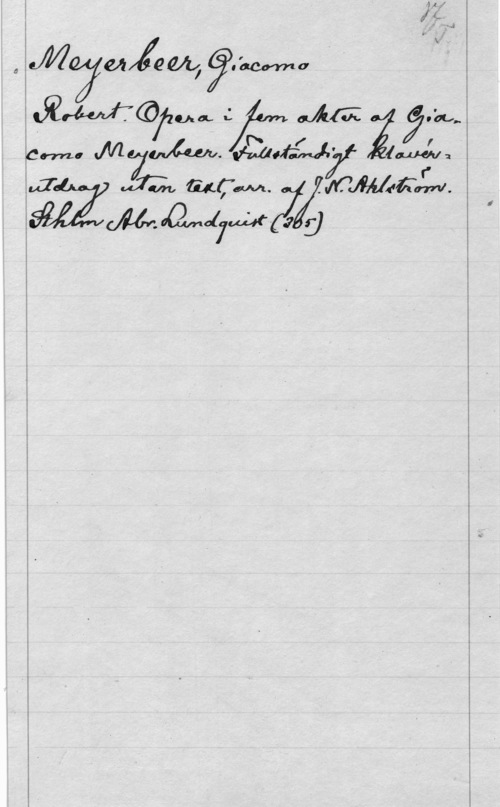 Meyerbeer, Giacomo
Robert. Opera i fem akter af Gia-
como Meyerbeer. Fullständigt klavér=
utdrag utan text, arr. af J. N. Ahlström.
Sthlm Abr. Lundquist (305)